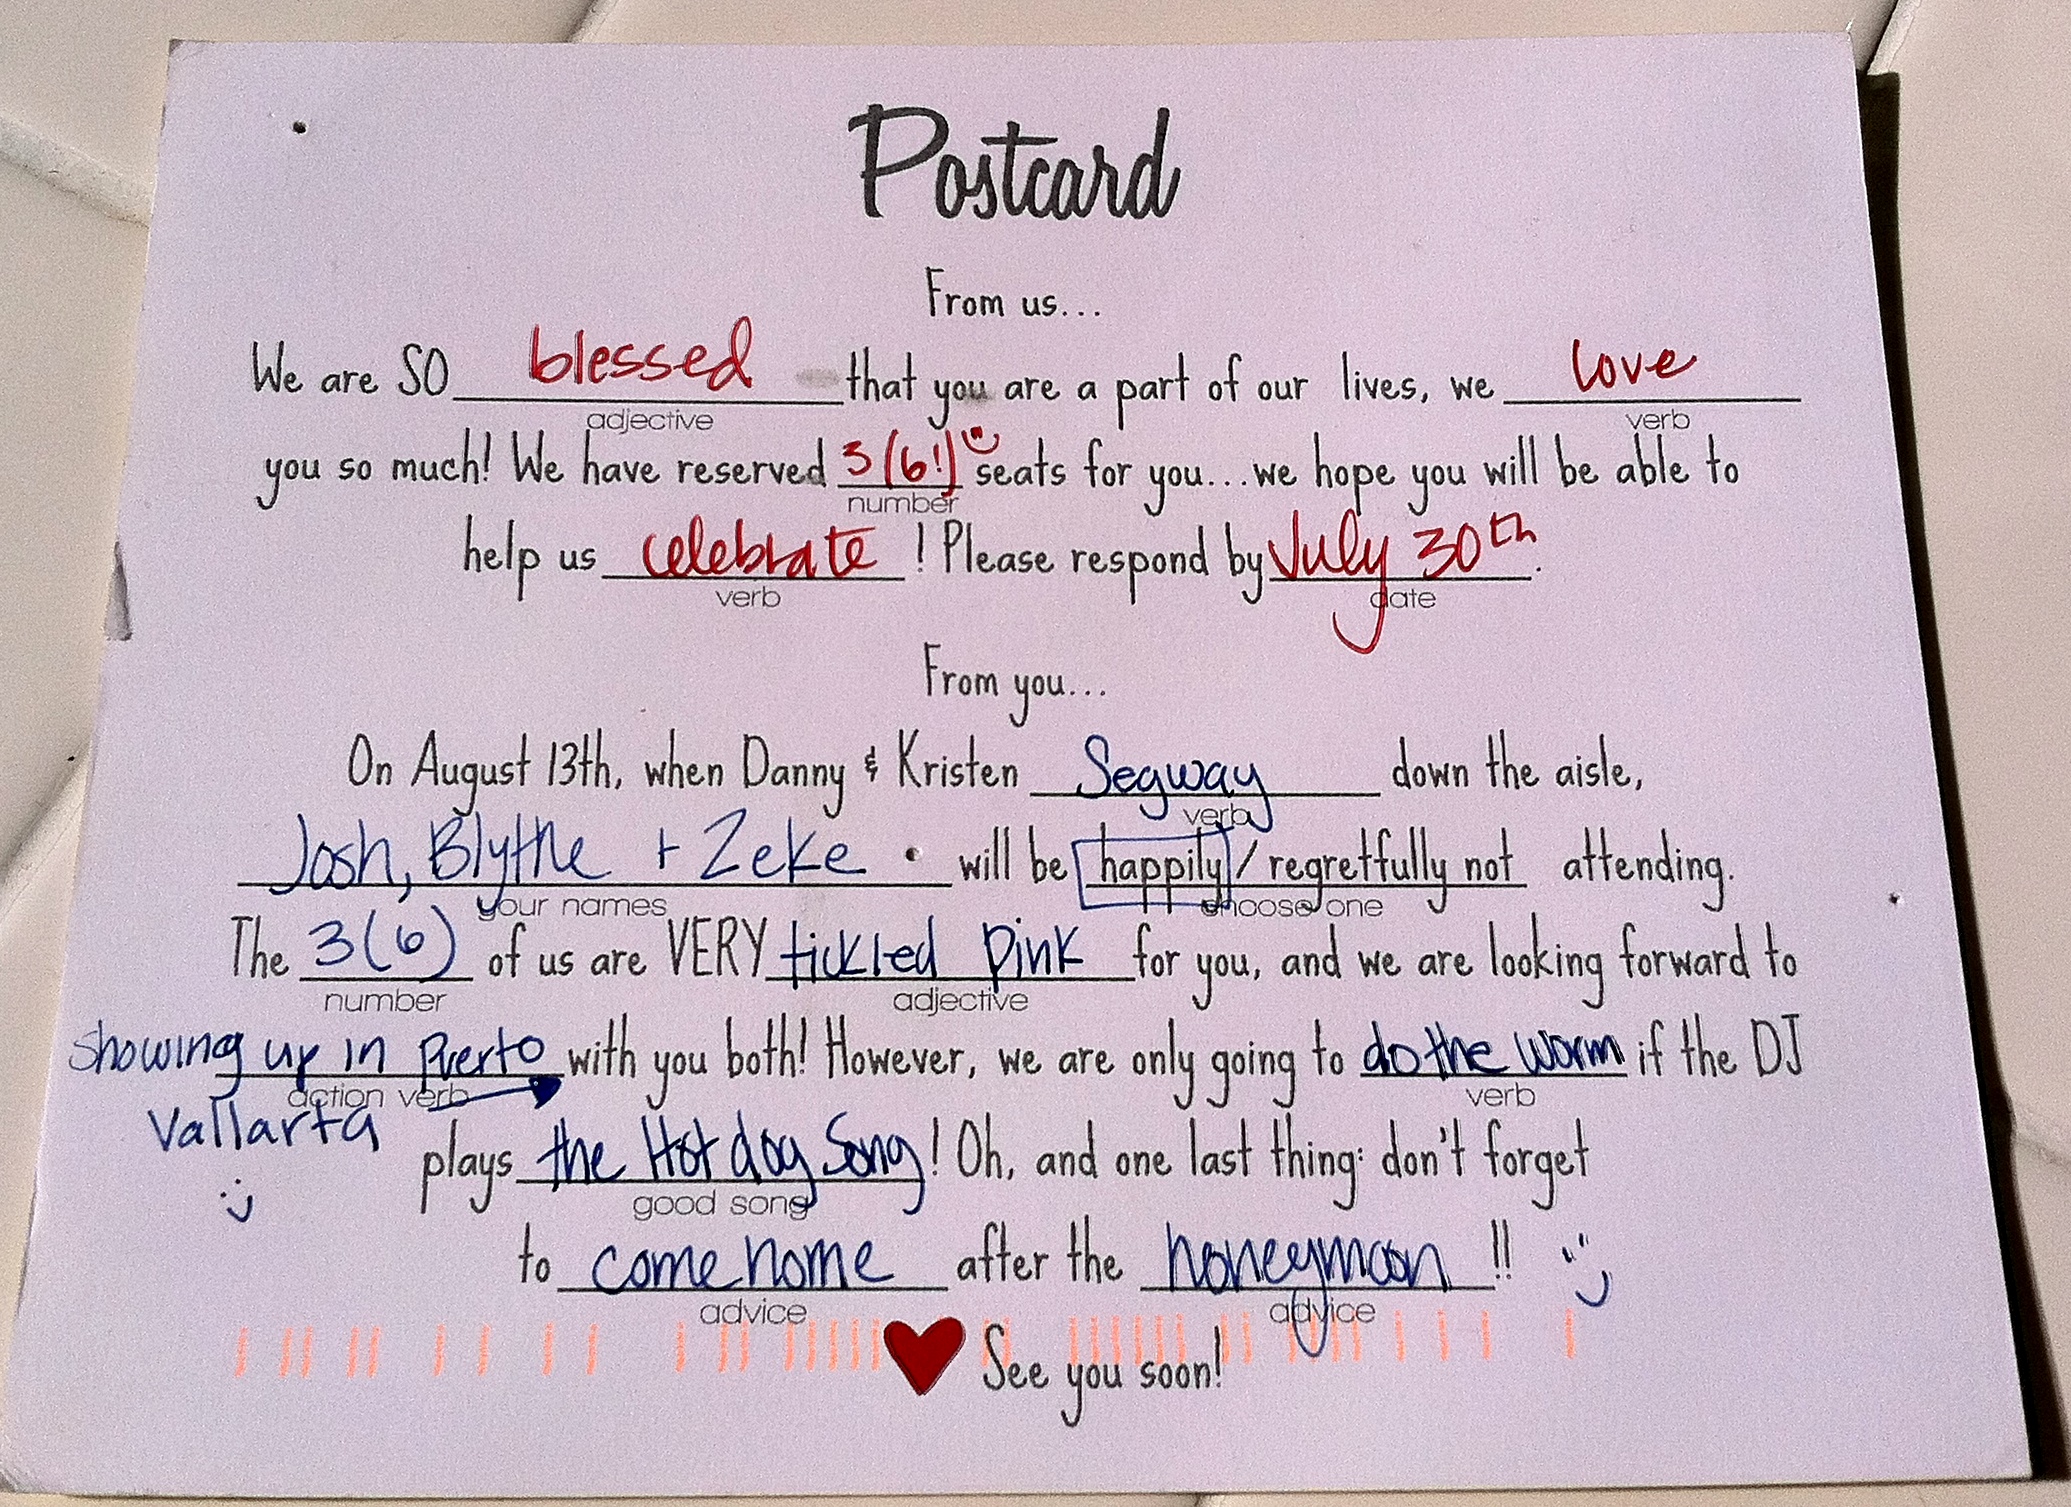 Postcard
From us...
We are SO blessed that you are a part of our lives, we love
adjective verb
you so much! We have reserved 3 (6!) seats for you...we hope you will be able to
number
help us celebrate! Please respond by July 30th.
verb date
From you...
On August 13th, when Danny & Kristen Segway down the aisle,
verb
Josh, Blythe + Zeke will be happily / regretfully not attending.
your names choose one
The 3 (6) of us are VERY tickled pink for you, and we are looking forward to
number adjective
showing up in Puerto with you both! However, we are only going to do the worm if the DJ
action verb verb
Vallarta
plays the Hot dog Song! Oh, and one last thing: don't forget
good song
to come home after the honeymoon!!
advice advice
See you soon!